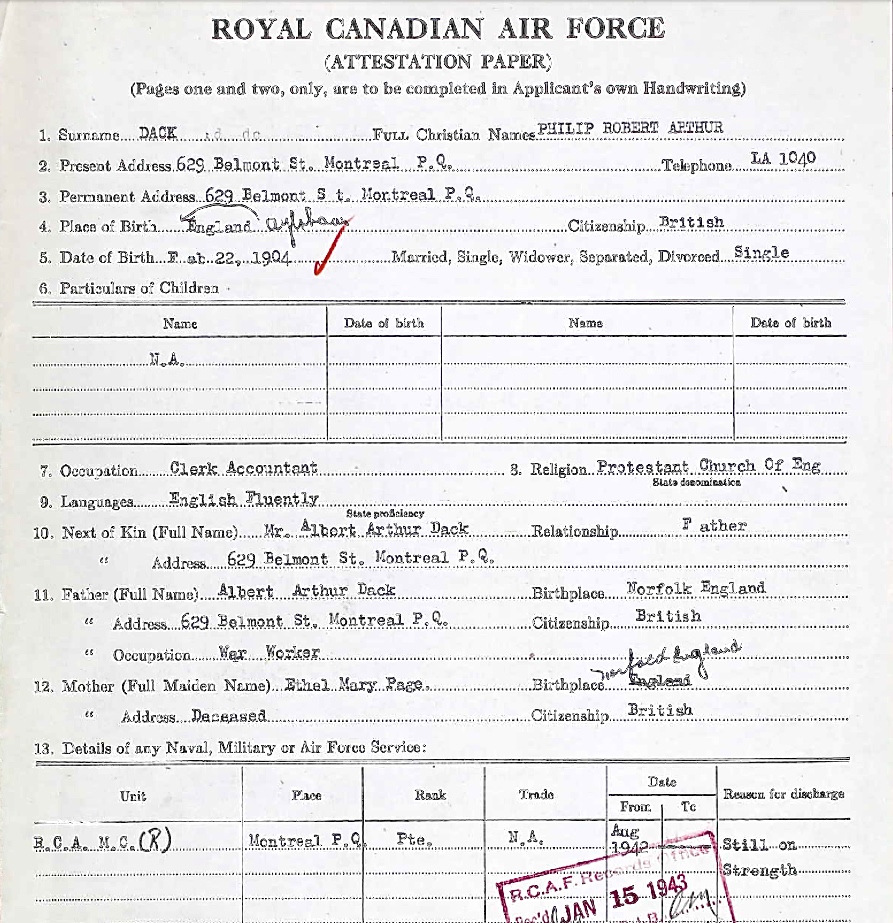 ROYAL CANADIAN AIR FORCE
(ATTESTATION PAPER)
(Pages one and two, only, are to be completed in Applicant's own Handwriting)
1. Surname DACK FULL Christian Names PHILIP ROBERT ARTHUR
2. Present Address 629 Belmont St. Montreal P.Q. Telephone LA 1040
3. Permanent Address 629 Belmont S t. Montreal P.Q.
4. Place of Birth England Citizenship British
5. Date of Birth F eb 22, 1904 Married, Single, Widower, Separated, Divorced Single
6. Particulars of Children
Name Date of birth Name Date of birth
N.A.
7. Occupation Clerk Accountant 8. Religion Protestant Church Of Eng
State denomination
9. Languages English Fluently
State proficiency
10. Next of Kin (Full Name) Mr. Albert Arthur Dack Relationship F ather
" Address 629 Belmont St. Montreal P.Q.
11. Father (Full Name) Albert Arthur Dack Birthplace Norfolk England
" Address 629 Belmont St. Montreal P.Q. Citizenship British
" Occupation War Worker
12. Mother (Full Maiden Name) Ethel Mary Page. Birthplace England Norfolk England
" Address Deceased Citizenship British
13. Details of any Naval, Military or Air Force Service:
Unit Place Rank Trade Date From To Reason for discharge
R.C.A. M.C. (R) Montreal P.Q Pte. N.A. Aug 1942 Still on Strength
R.C.A.F. Records Office
Rec'd JAN 15 1943